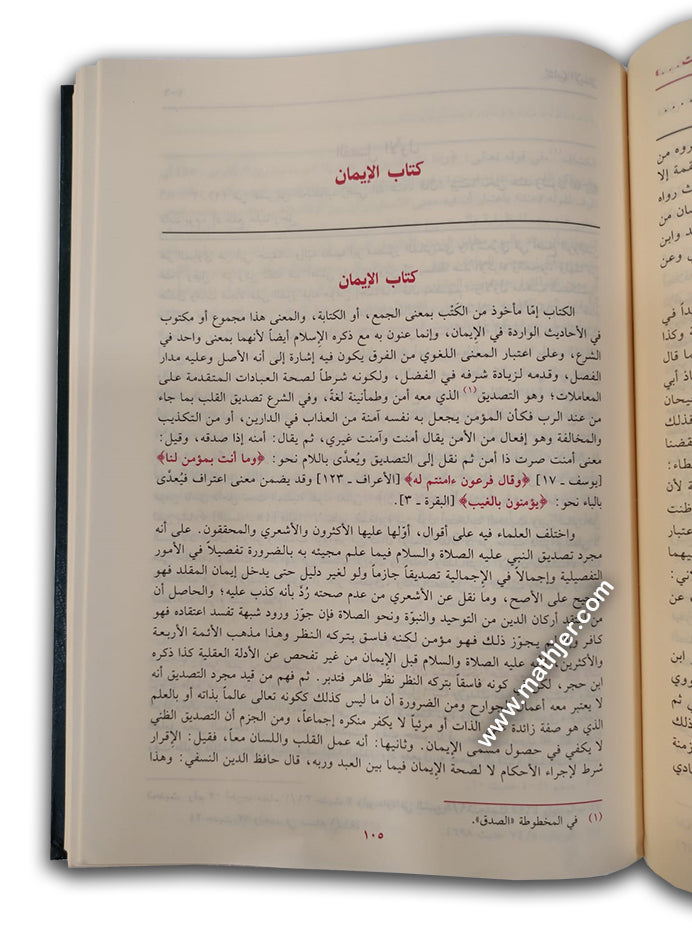 كتاب الإيمان
كتاب الإيمان
الكتاب إمّا مأخوذ من الكَتْب بمعنى الجمع، أو الكتابة، والمعنى هذا مجموع أو مكتوب
في الأحاديث الواردة في الإيمان، وإنما عنون به مع ذكره الإسلام أيضاً لأنهما بمعنى واحد في
الشرع، وعلى اعتبار المعنى اللغوي من الفرق يكون فيه إشارة إلى أنه الأصل وعليه مدار
الفصل، وقدمه لزيادة شرفه في الفضل، ولكونه شرطاً لصحة العبادات المتقدمة على
المعاملات؛ وهو التصديق(١) الذي معه أمن وطمأنينة لغةً، وفي الشرع تصديق القلب بما جاء
من عند الرب فكأن المؤمن يجعل به نفسه آمنة من العذاب في الدارين، أو من التكذيب
والمخالفة وهو إفعال من الأمن يقال أمنت وآمنت غيري، ثم يقال: أمنه إذا صدقه، وقيل:
معنى أمنت صرت ذا أمن ثم نقل إلى التصديق ويُعدَّى باللام نحو: ﴿وما أنت بمؤمن لنا﴾
[يوسف ـ ١٧] ﴿وقال فرعون ءامنتم له﴾ [الأعراف ـ ١٢٣] وقد يضمن معنى اعتراف فيُعدَّى
بالباء نحو: ﴿يؤمنون بالغيب﴾ [البقرة ـ ٣].
واختلف العلماء فيه على أقوال، أوّلها عليها الأكثرون والأشعري والمحققون. على أنه
مجرد تصديق النبي عليه الصلاة والسلام فيما علم مجيئه به بالضرورة تفصيلاً في الأمور
التفصيلية وإجمالاً في الإجمالية تصديقاً جازماً ولو لغير دليل حتى يدخل إيمان المقلد فهو
على الأصح، وما نقل عن الأشعري من عدم صحته رُدَّ بأنه كذب عليه؛ والحاصل أن
أركان الدين من التوحيد والنبوّة ونحو الصلاة فإن جوّز ورود شبهة تفسد اعتقاده فهو
كافر يجوّز ذلك فهو مؤمن لكنه فاسق بتركه النظر وهذا مذهب الأئمة الأربعة
والأكثرين عليه الصلاة والسلام قبل الإيمان من غير تفحص عن الأدلة العقلية كذا ذكره
ابن حجر، كونه فاسقاً بتركه النظر نظر ظاهر فتدبر. ثم فهم من قيد مجرد التصديق أنه
لا يعتبر معه الجوارح ومن الضرورة أن ما ليس كذلك ككونه تعالى عالماً بذاته أو بالعلم
الذي هو صفة زائدة الذات أو مرئياً لا يكفر منكره إجماعاً، ومن الجزم أن التصديق الظني
لا يكفي في حصول مسمى الإيمان. وثانيها: أنه عمل القلب واللسان معاً، فقيل: الإقرار
شرط لإجراء الأحكام لا لصحة الإيمان فيما بين العبد وربه، قال حافظ الدين النسفي: وهذا
(١) في المخطوطة «الصدق».
١٠٥
www.mathjer.com